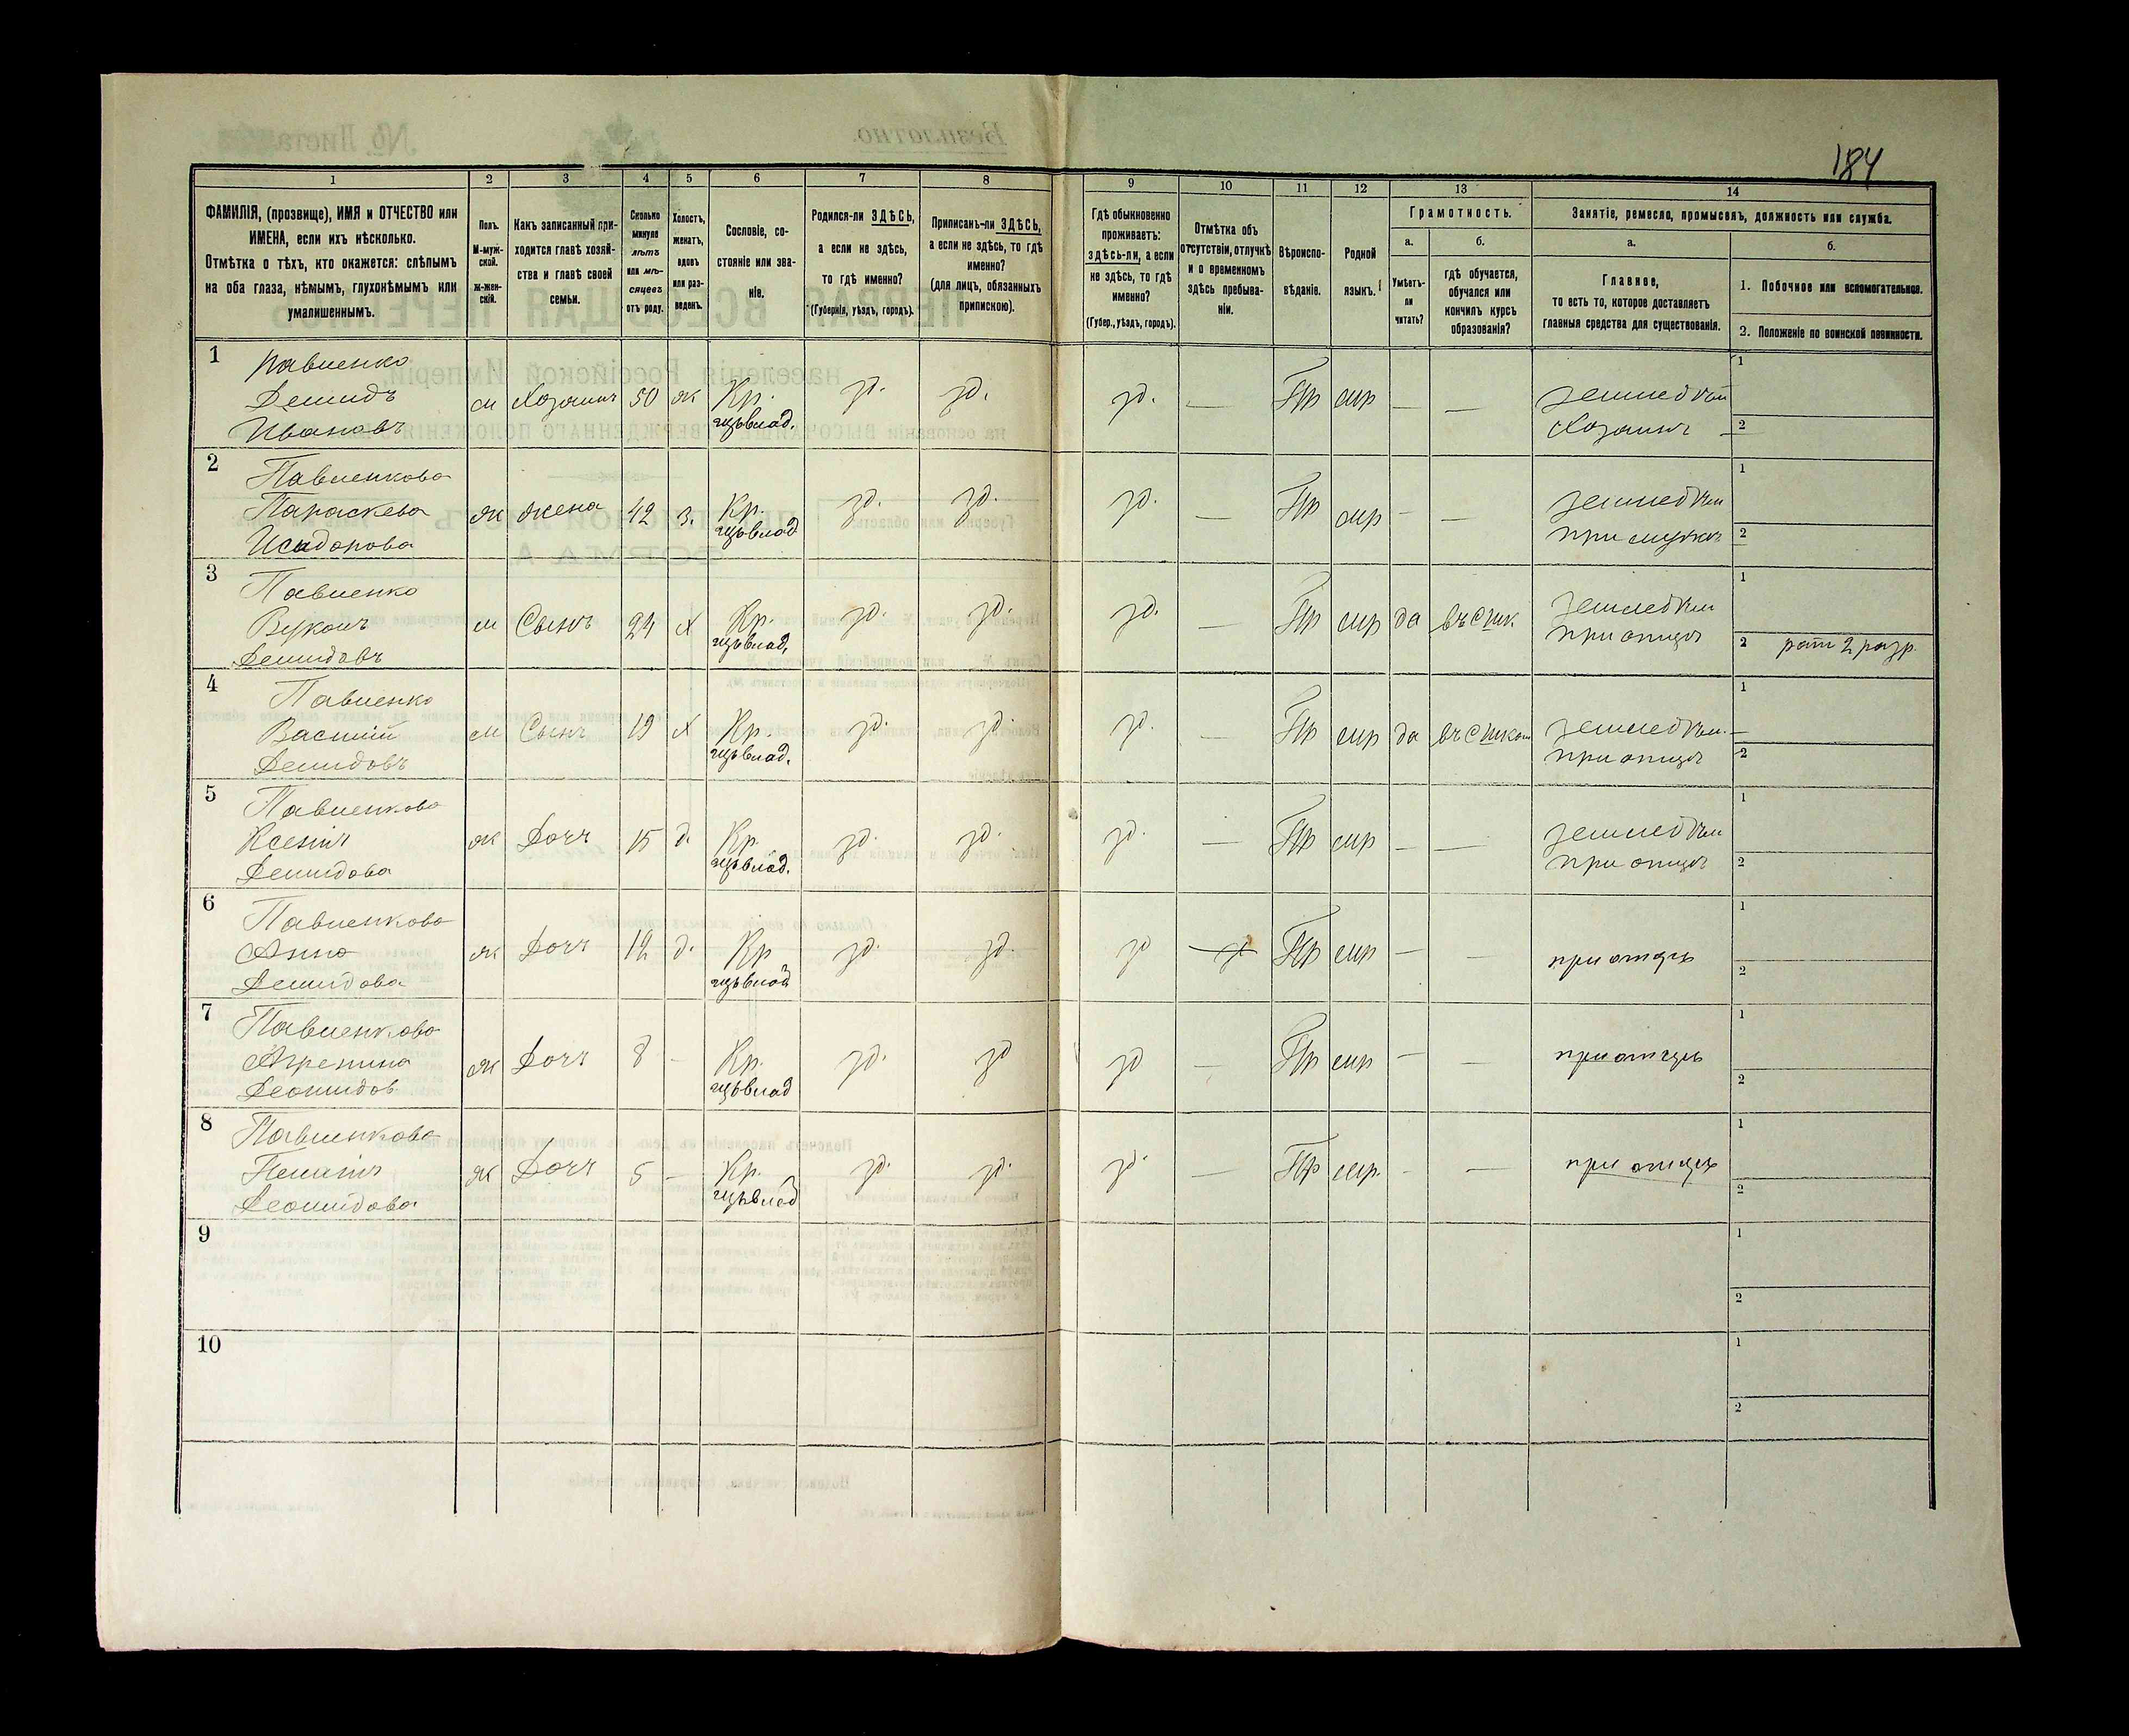 184
1 2 3 4 5 6 7 8 9 10 11 12 13 14
ФАМИЛІЯ, (прозвище), ИМЯ и ОТЧЕСТВО или
ИМЕНА, если ихъ нѣсколько.
Отмѣтка о тѣхъ, кто окажется: слѣпымъ
на оба глаза, нѣмымъ, глухонѣмымъ или
умалишеннымъ.
Полъ.
М-муж-
ской.
ж-жен-
скій.
Какъ записанный при-
ходится главѣ хозяй-
ства и главѣ своей
семьи.
Сколько
минуло
лѣтъ
или мѣ-
сяцевъ
отъ роду.
Холостъ,
женатъ,
вдовъ
или раз-
веденъ.
Сословіе, со-
стояніе или зва-
ніе.
Родился-ли ЗДѢСЬ,
а если не здѣсь,
то гдѣ именно?
(Губернія, уѣздъ, городъ).
Приписанъ-ли ЗДѢСЬ,
а если не здѣсь, то гдѣ
именно?
(для лицъ, обязанныхъ
припискою).
Гдѣ обыкновенно
проживаетъ:
здѣсь-ли, а если
не здѣсь, то гдѣ
именно?
(Губер., уѣздъ, городъ).
Отмѣтка объ
отсутствіи, отлучкѣ
и о временномъ
здѣсь пребыва-
ніи.
Вѣроиспо-
вѣданіе.
Родной
языкъ.
Грамотность.
а.
Умѣетъ-
ли
читать?
б.
гдѣ обучается,
обучался или
кончилъ курсъ
образованія?
Занятіе, ремесло, промыселъ, должность или служба.
а.
Главное,
то есть то, которое доставляетъ
главныя средства для существованія.
б.
1. Побочное или вспомогательное.
2. Положеніе по воинской повинности.
1
Павленко
Демидъ
Ивановъ
м Хозяинъ 50 ж Кр. зд. зд. зд. — Пр мр — —
Хозяинъ
1
2
2
Павленкова
Параскева
Исидорова
ж жена 42 з. Кр. зд. зд. зд. — Пр мр — —
при мужѣ
1
2
3
Павленко
Вуколъ
Демидовъ
м Сынъ 24 х Кр. зд. зд. зд. — Пр мр да въ с шк.
при отцѣ
1
2 рат 2 разр.
4
Павленко
Василий
Демидовъ
м Сынъ 19 х Кр. зд. зд. зд. — Пр мр да въ с школ
при отцѣ
1
2
5
Павленкова
Ксенія
Демидова
ж Дочь 15 д. Кр. зд. зд. зд. — Пр мр — —
при отцѣ
1
2
6
Павленкова
Анна
Демидова
ж Дочь 12 д. Кр зд. зд. зд Пр мр — —
при отцѣ
1
2
7
Павленкова
ж Дочь 8 — Кр. зд. зд зд — Пр мр — —
при отцѣ
1
2
8
Павленкова
Пелагія
ж Дочь 5 — Кр. зд. зд. зд. — Пр мр. — —
при отцѣ
1
2
9
1
2
10
1
2